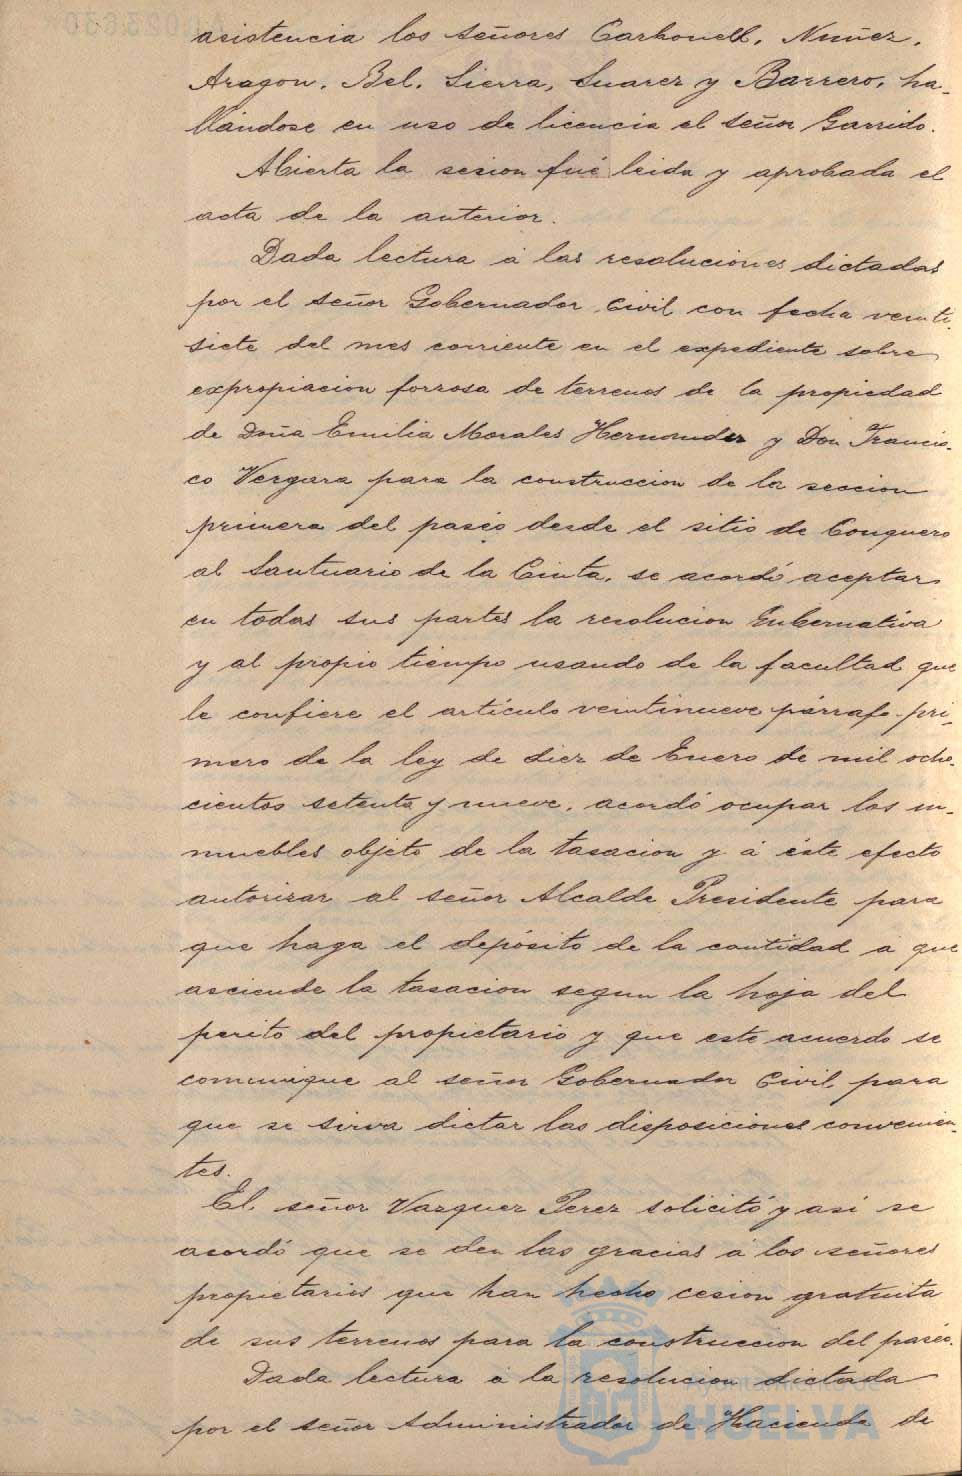 asistencia los señores Carbonell, Nuñez,
Aragon, Bel, Sierra, Suarez y Barrero, ha-
llándose en uso de licencia el señor Garrido.
Abierta la sesion fué leida y aprobada el
acta de la anterior.
Dada lectura á las resoluciones dictadas
por el señor Gobernador Civil con fecha veinti-
siete del mes corriente en el expediente sobre
expropiacion forrosa de terrenos de la propiedad
de Doña Emilia Morales Hernandez y Don Francis-
co Vergara para la construccion de la seccion
primera del paseo desde el sitio de Conquero
al Santuario de la Cinta, se acordó aceptar
en todas sus partes la resolucion Gubernativa
y al propio tiempo usando de la facultad que
le confiere el artículo veintinueve párrafo pri-
mero de la ley de diez de Enero de mil ocho-
cientos setenta y nueve, acordó ocupar los in-
muebles objeto de la tasacion y á éste efecto
autorizar al señor Alcalde Presidente para
que haga el depósito de la cantidad á que
asciende la tasacion segun la hoja del
perito del propietario y que este acuerdo se
comunique al señor Gobernador Civil para
que se sirva dictar las disposiciones convenien-
tes.
El señor Vazquez Perez solicitó y así se
acordó que se den las gracias á los señores
propietarios que han hecho cesion gratuita
de sus terrenos para la construccion del paseo.
Dada lectura á la resolucion dictada
por el señor Administrador de Hacienda de
Ayuntamiento de
HUELVA